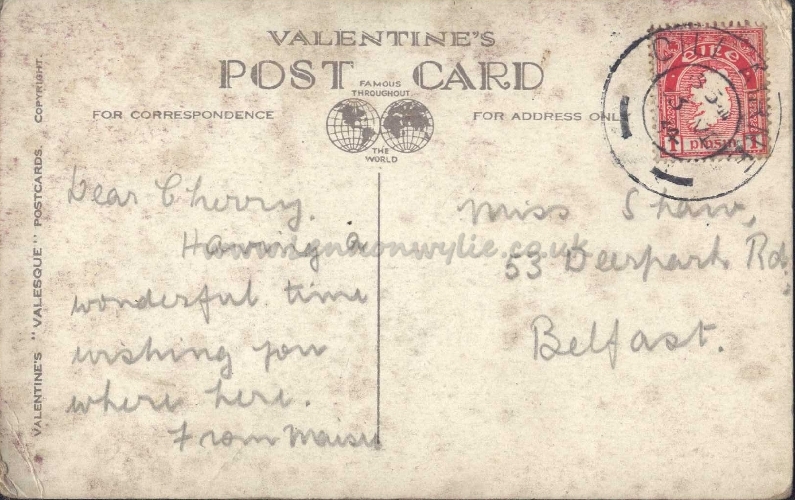 VALENTINE'S
POST CARD
FAMOUS
THROUGHOUT
THE
WORLD
FOR CORRESPONDENCE
FOR ADDRESS ONLY
VALENTINE'S "VALESQUE" POSTCARDS. COPYRIGHT.
éire
1 pinġin 1
Dear Cherry.
Having a
wonderful time
wishing you
where here.
From Maisie
Miss Shaw,
53 Deerpark Rd,
Belfast.